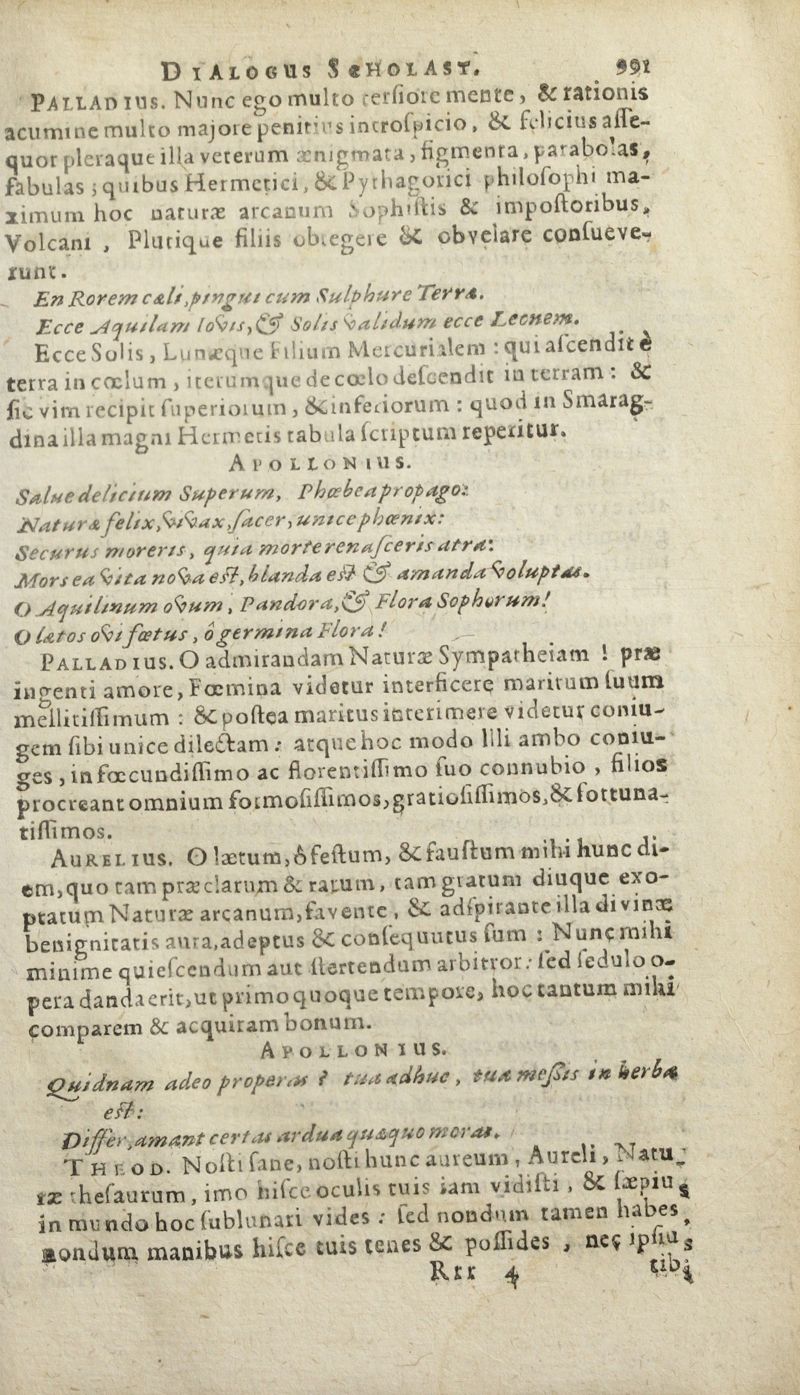 DIALOGUS SCHOLAST. 991
PALLADIUS. Nunc ego multo terſiore mente, & rationis
acumine multo majore penitius introſpicio, & felicius aſſe-
quor pleraque illa veterum ænigmata, figmenta, parabolas,
fabulas; quibus Hermetici, & Pythagorici philoſophi ma-
ximum hoc naturæ arcanum Sophiſtis & impoſtoribus,
Volcani, Plutique filiis obtegere & obvelare conſueve-
runt.
En Rorem cæli, pingui cum Sulphure Terræ.
Ecce Aquilam Iovis, & Solis validum ecce Leonem.
Ecce Solis, Lunæque Filium Mercurialem : qui aſcendit è
terra in cœlum, iterumque de cœlo deſcendit in terram : &
ſic vim recipit ſuperiorum, & inferiorum : quod in Smarag-
dina illa magni Hermetis tabula ſcriptum reperitur.
APOLLONIUS.
Salue delicium Superum, Phœbea propago:
Naturæ felix, vivax, ſacer, unice phœnix:
Securus moreris, quia morte renaſceris atra:
Mors ea vita nova eſt, blanda eſt & amanda voluptas.
O Aquilinum ovum, Pandora, & Flora Sophorum!
O lætos ovi fœtus, ô germina Flora!
PALLADIUS. O admirandam Naturæ Sympatheiam ! præ
ingenti amore, Fœmina videtur interficere maritum ſuum
mellitiſſimum : & poſtea maritus interimere videtur coniu-
gem ſibi unice dilectam : atque hoc modo illi ambo coniu-
ges, in fœcundiſſimo ac florentiſſimo ſuo connubio, filios
procreant omnium formoſiſſimos, gratioſiſſimos, & fortuna-
tiſſimos.
AURELIUS. O lætum, ô feſtum, & fauſtum mihi hunc di-
em, quo tam præclarum & ratum, tam gratum diuque exo-
ptatum Naturæ arcanum, favente, & adſpirante illa divinæ
benignitatis aura, adeptus & conſequutus ſum : Nunc mihi
minime quieſcendum aut ſtertendum arbitror : ſed ſedulo o-
pera danda erit, ut primo quoque tempore, hoc tantum mihi
comparem & acquiram bonum.
APOLLONIUS.
Quidnam adeo properas ? tua adhuc, tua meſſis in herba
eſt :
Differ, amant certas ardua quæquo moras.
THEOD. Noſti ſane, noſti hunc aureum, Aureli, Natu-
ræ theſaurum, imo hiſce oculis tuis iam vidiſti, & ſæpius
in mundo hoc ſublunari vides : ſed nondum tamen habes,
nondum manibus hiſce tuis tenes & poſſides, neq ipſius
Rrr 4 tibi